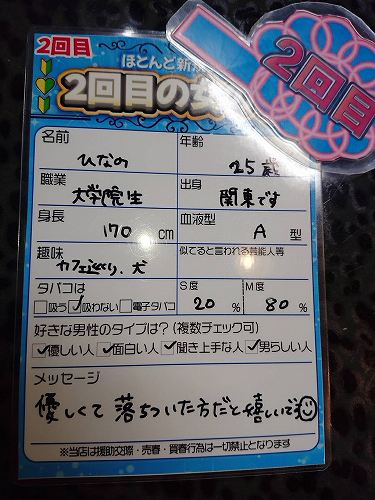 2回目
2回目
ほとんど新規
2回目の女
名前
ひなの
年齢
25歳
職業
大学院生
出身
関東です
身長
170cm
血液型
A型
趣味
カフェ巡り、犬
似てると言われる芸能人等
タバコは
□吸う ☑吸わない □電子タバコ
S度
20%
M度
80%
好きな男性のタイプは?(複数チェック可)
☑優しい人 ☑面白い人 ☑聞き上手な人 ☑男らしい人
メッセージ
優しくて落ちついた方だと嬉しいです
※当店は援助交際・売春・買春行為は一切禁止となります